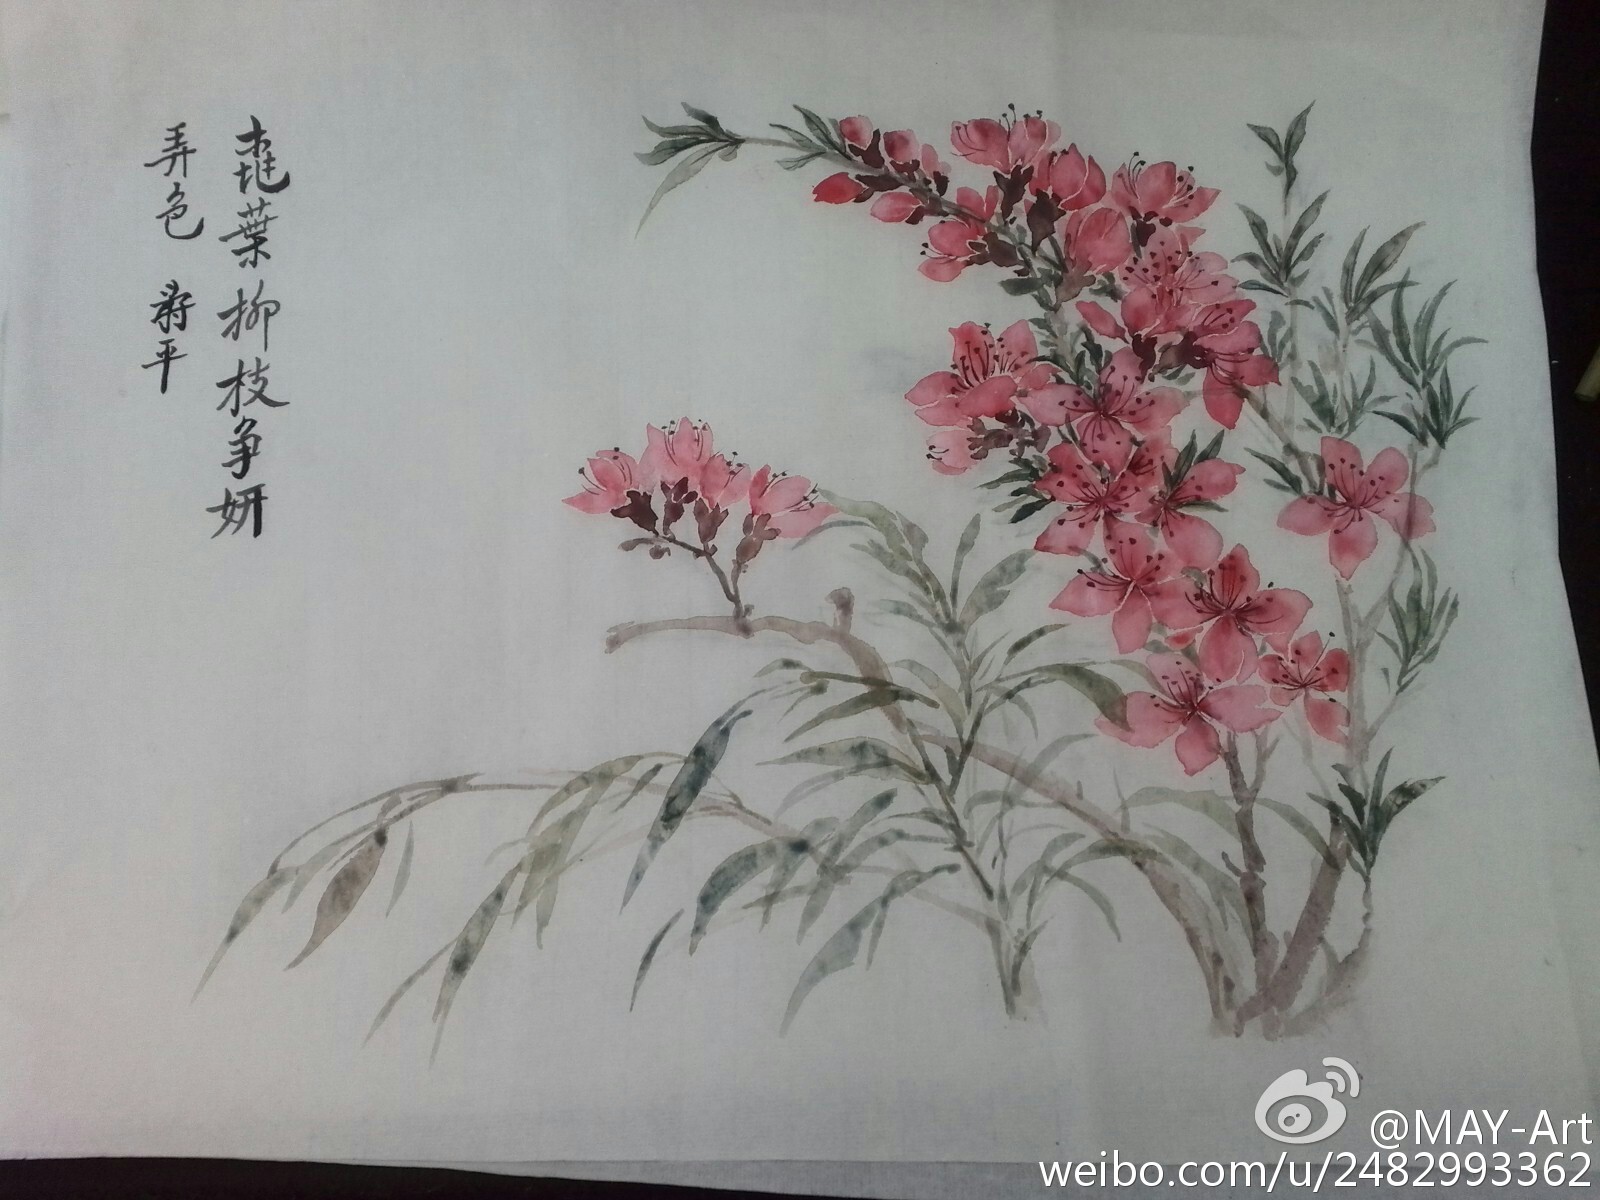 葉柳枝争妍
弄色 寿平
@MAY-Art
weibo.com/u/2482993362